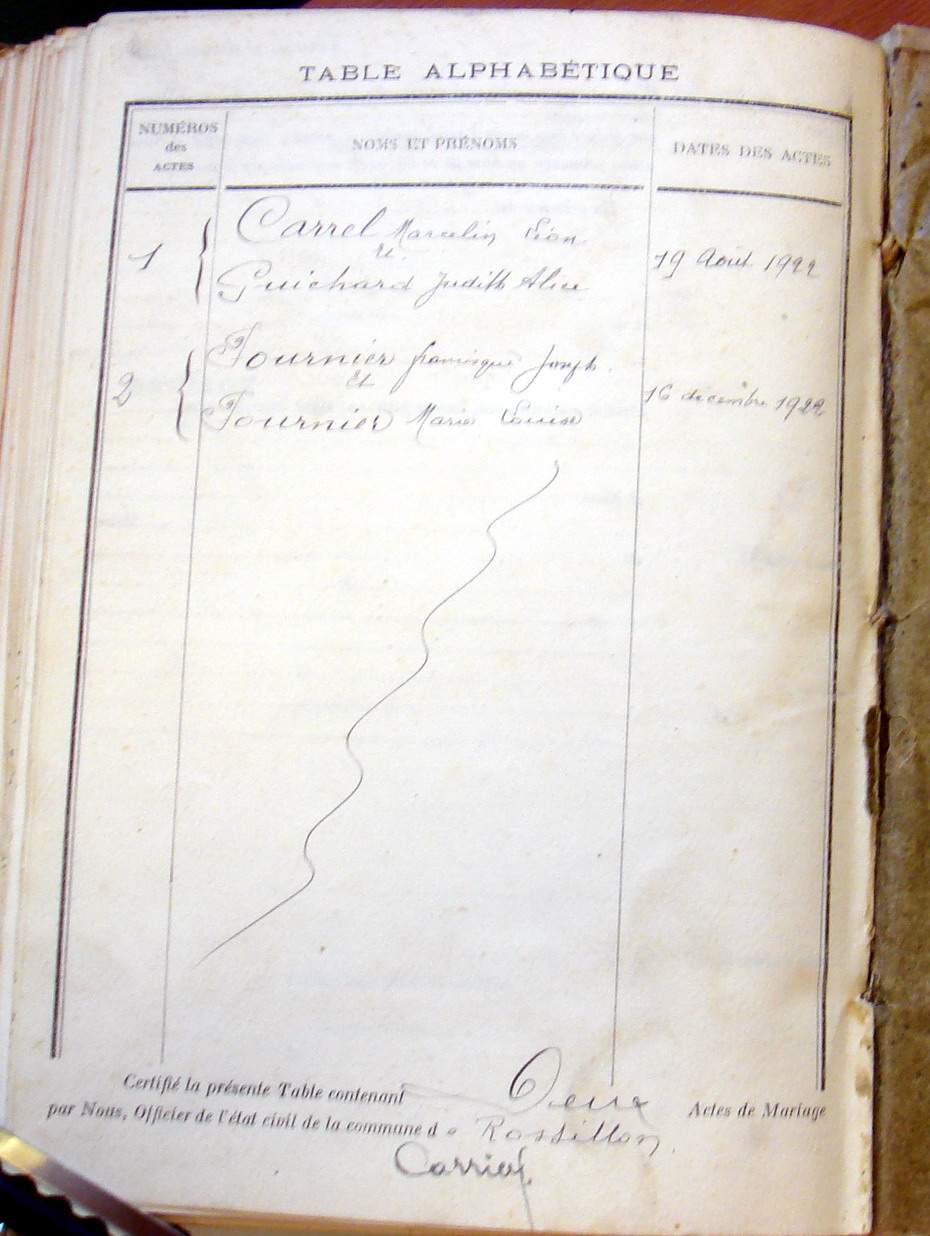 TABLE ALPHABÉTIQUE
NUMÉROS
des
ACTES
NOMS ET PRÉNOMS
DATES DES ACTES
Carrel Marcelin Léon
1
et
19 Août 1922
Guichard Judith Alice
Fournier francisque Joseph
2
Et
16 décembre 1922
Fournier Marie Louise
Certifié la présente Table contenant Deux Actes de Mariage
par Nous, Officier de l'état civil de la commune de Rossillon